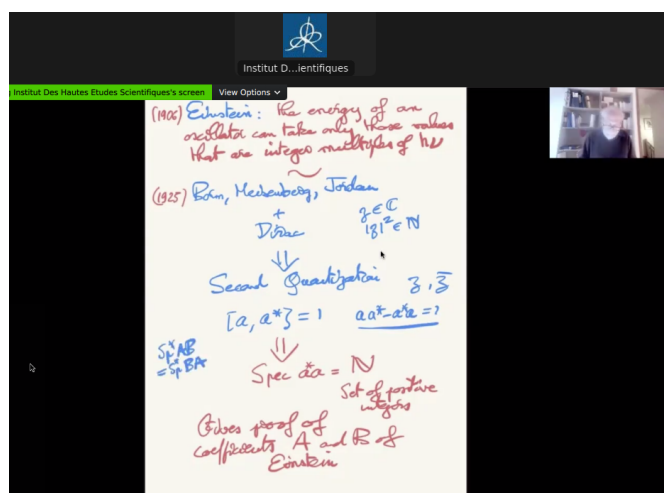 Institut D...ientifiques
Institut Des Hautes Etudes Scientifiques's screen
View Options
(1906) Einstein: the energy of an
oscillator can take only those values
that are integer multiples of hν
(1925) Born, Heisenberg, Jordan
+
Dirac
z ∈ ℂ
|z|² ∈ ℕ
⇓
Second Quantization z, z̄
[a, a*] = 1 aa* - a*a = 1
Sp*AB
= Sp*BA
⇓
Spec a*a = ℕ
Set of positive
integers
Gives proof of
coefficients A and B of
Einstein